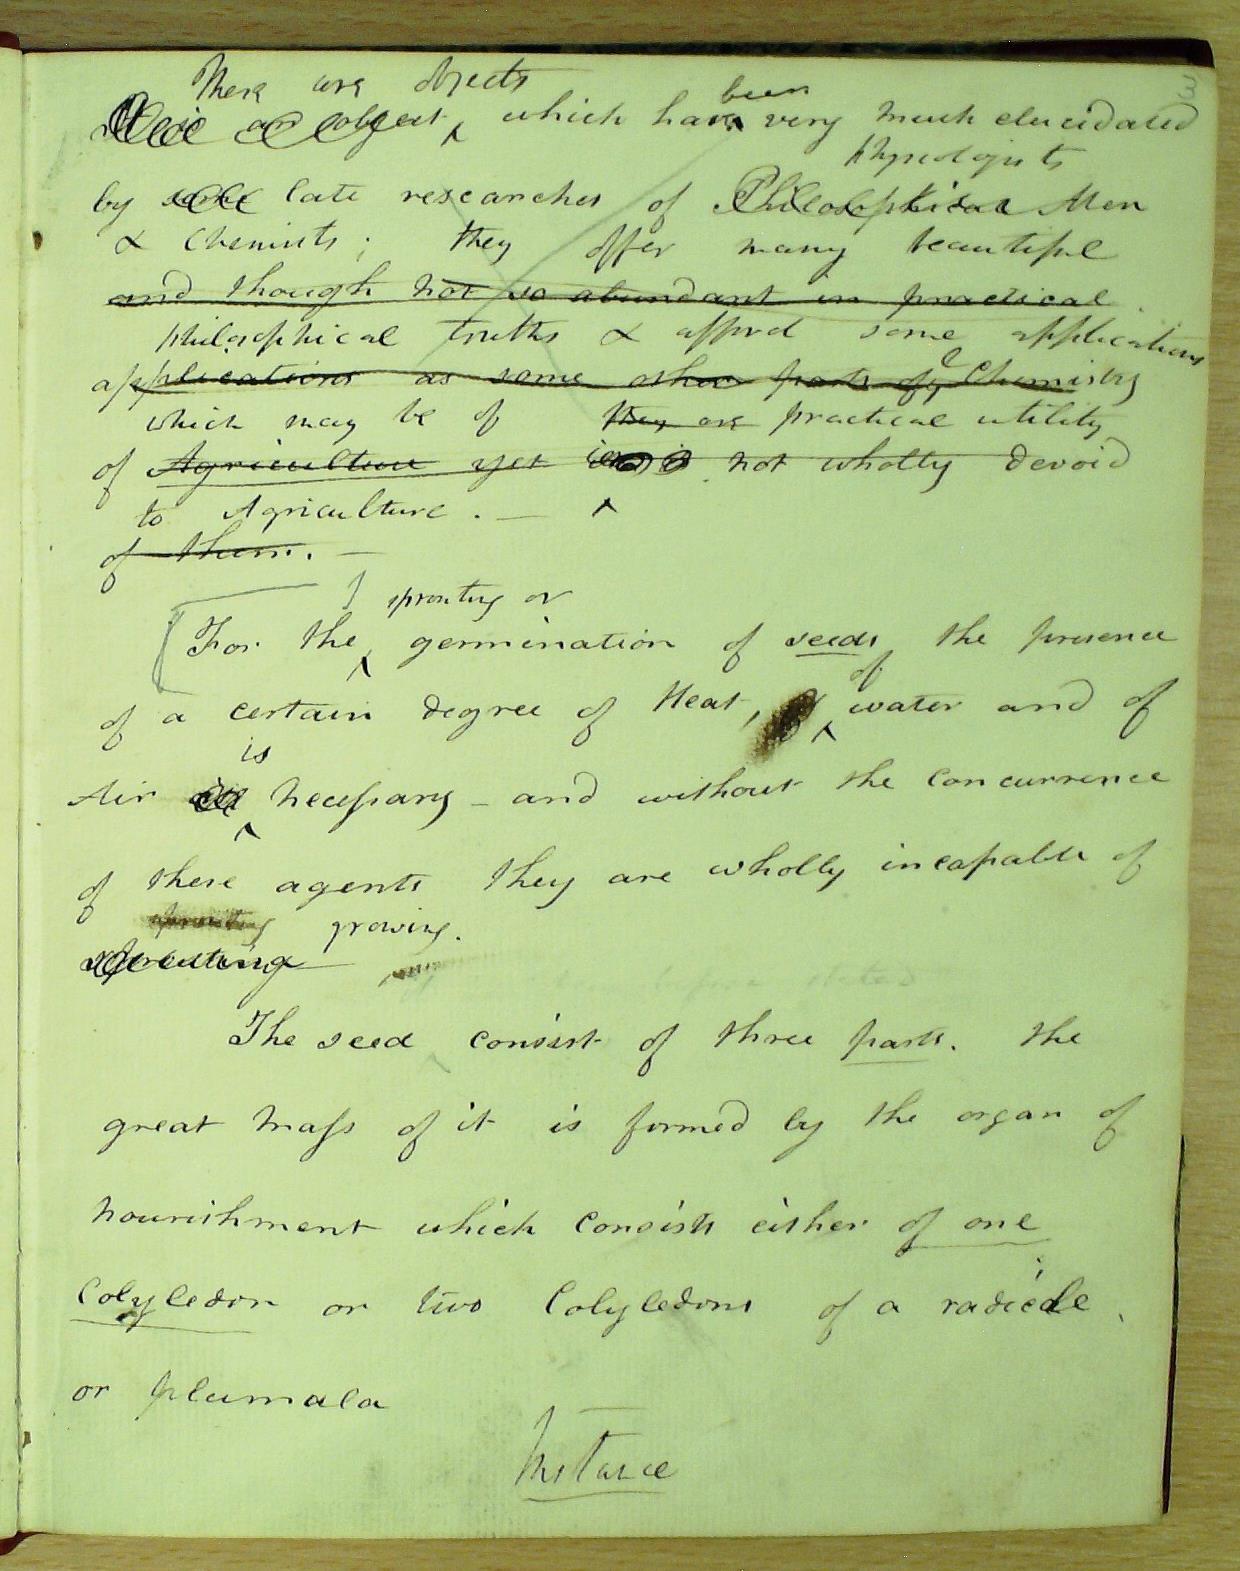 3
There are objects
an object which have been very much elucidated
physiologists
by some late researches of Philosophical Men
& Chemists; they offer many beautiful
and though not so abundant in practical
philosophical truths & afford some applications
applications as some other parts of Chemistry
which may be of they are practical utility
of Agriculture yet not wholly devoid
to Agriculture. —
of them. —
sprouting or
For the germination of seeds the presence
of
of a certain degree of Heat, water and of
is
Air necessary - and without the concurrence
of these agents they are wholly incapable of
sprouting growing.
sprouting
The seed consist of three parts. the
great mass of it is formed by the organ of
nourishment which consists either of one
Colyledon or two Colyledons of a radicle
or plumala
Instance